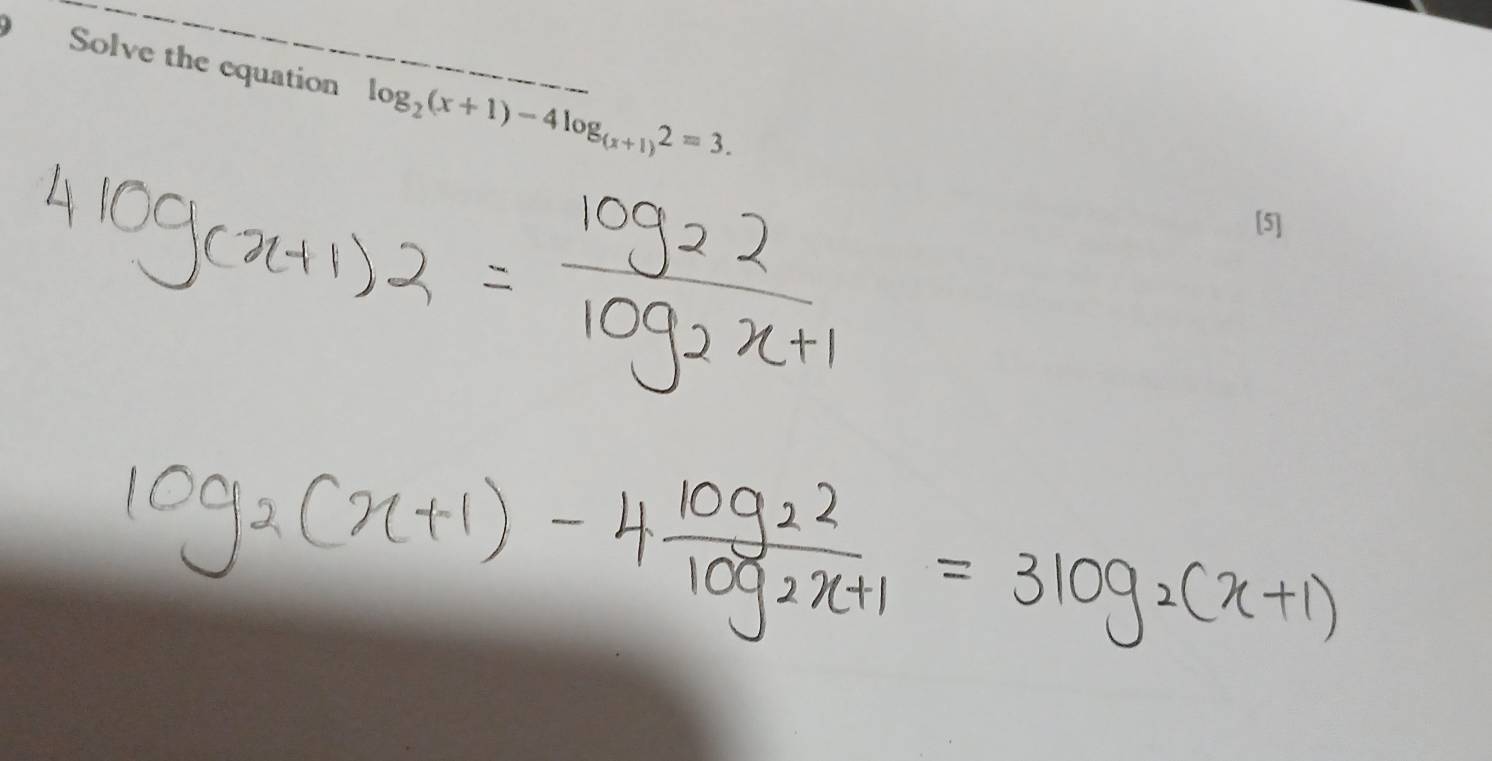 9 Solve the equation log₂(x+1) − 4log₍ₓ₊₁₎2 = 3.
[5]
4 log(x+1) 2 = log₂ 2 / log₂ x+1
log₂(x+1) − 4 log₂ 2 / log₂ x+1 = 3log₂(x+1)